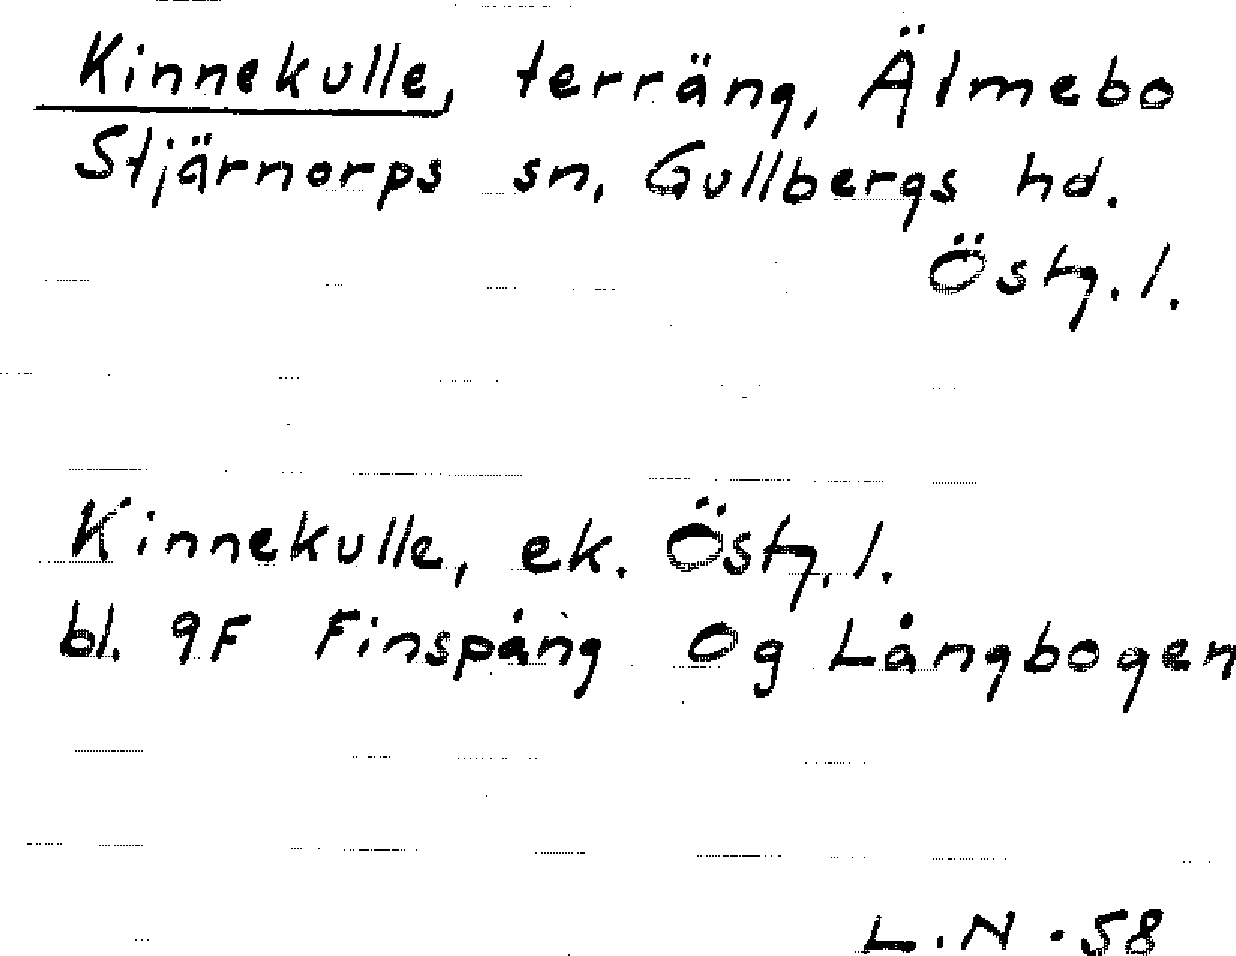 Kinnekulle, terräng, Älmebo
Stjärnorps sn, Gullbergs hd.
Östg. l.
Kinnekulle, ek. Östg. l.
bl. 9F Finspång 0g Långbogen
L. N. 58